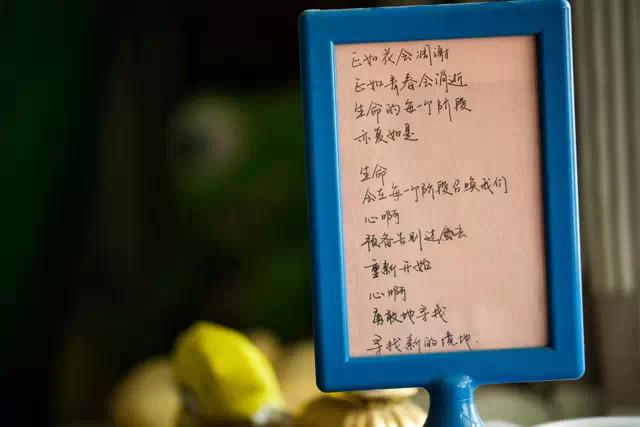 正如花会凋谢
正如青春会消逝
生命的每一个阶段
亦复如是
生命
会在每一个阶段召唤我们
心啊
预备告别过去
重新开始
心啊
勇敢地寻找
寻找新的境地.